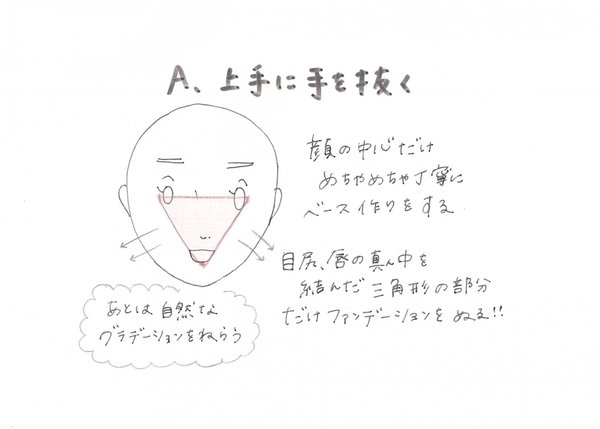 A、上手に手を抜く
顔の中心だけ
めちゃめちゃ丁寧に
ベース作りをする
目尻、唇の真ん中を
結んだ三角形の部分
だけファンデーションをぬる!!
あとは自然な
グラデーションをねらう